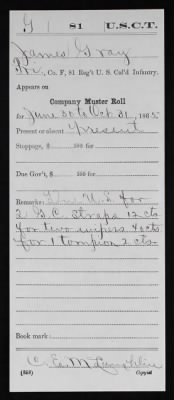 G | 81 | U.S.C.T.
James Gray
Pvt., Co. F, 81 Reg't U. S. Col'd Infantry.
Appears on
Company Muster Roll
for June 30 to Oct 31, 1865.
Present or absent Present
Stoppage, $ 100 for
Due Gov't, $ 100 for
Remarks: Due U.S. for
2 G.C. straps 12 cts
for two wipers 40 cts
for 1 tompion 2 cts.
Book mark:
(858)
Copyist.